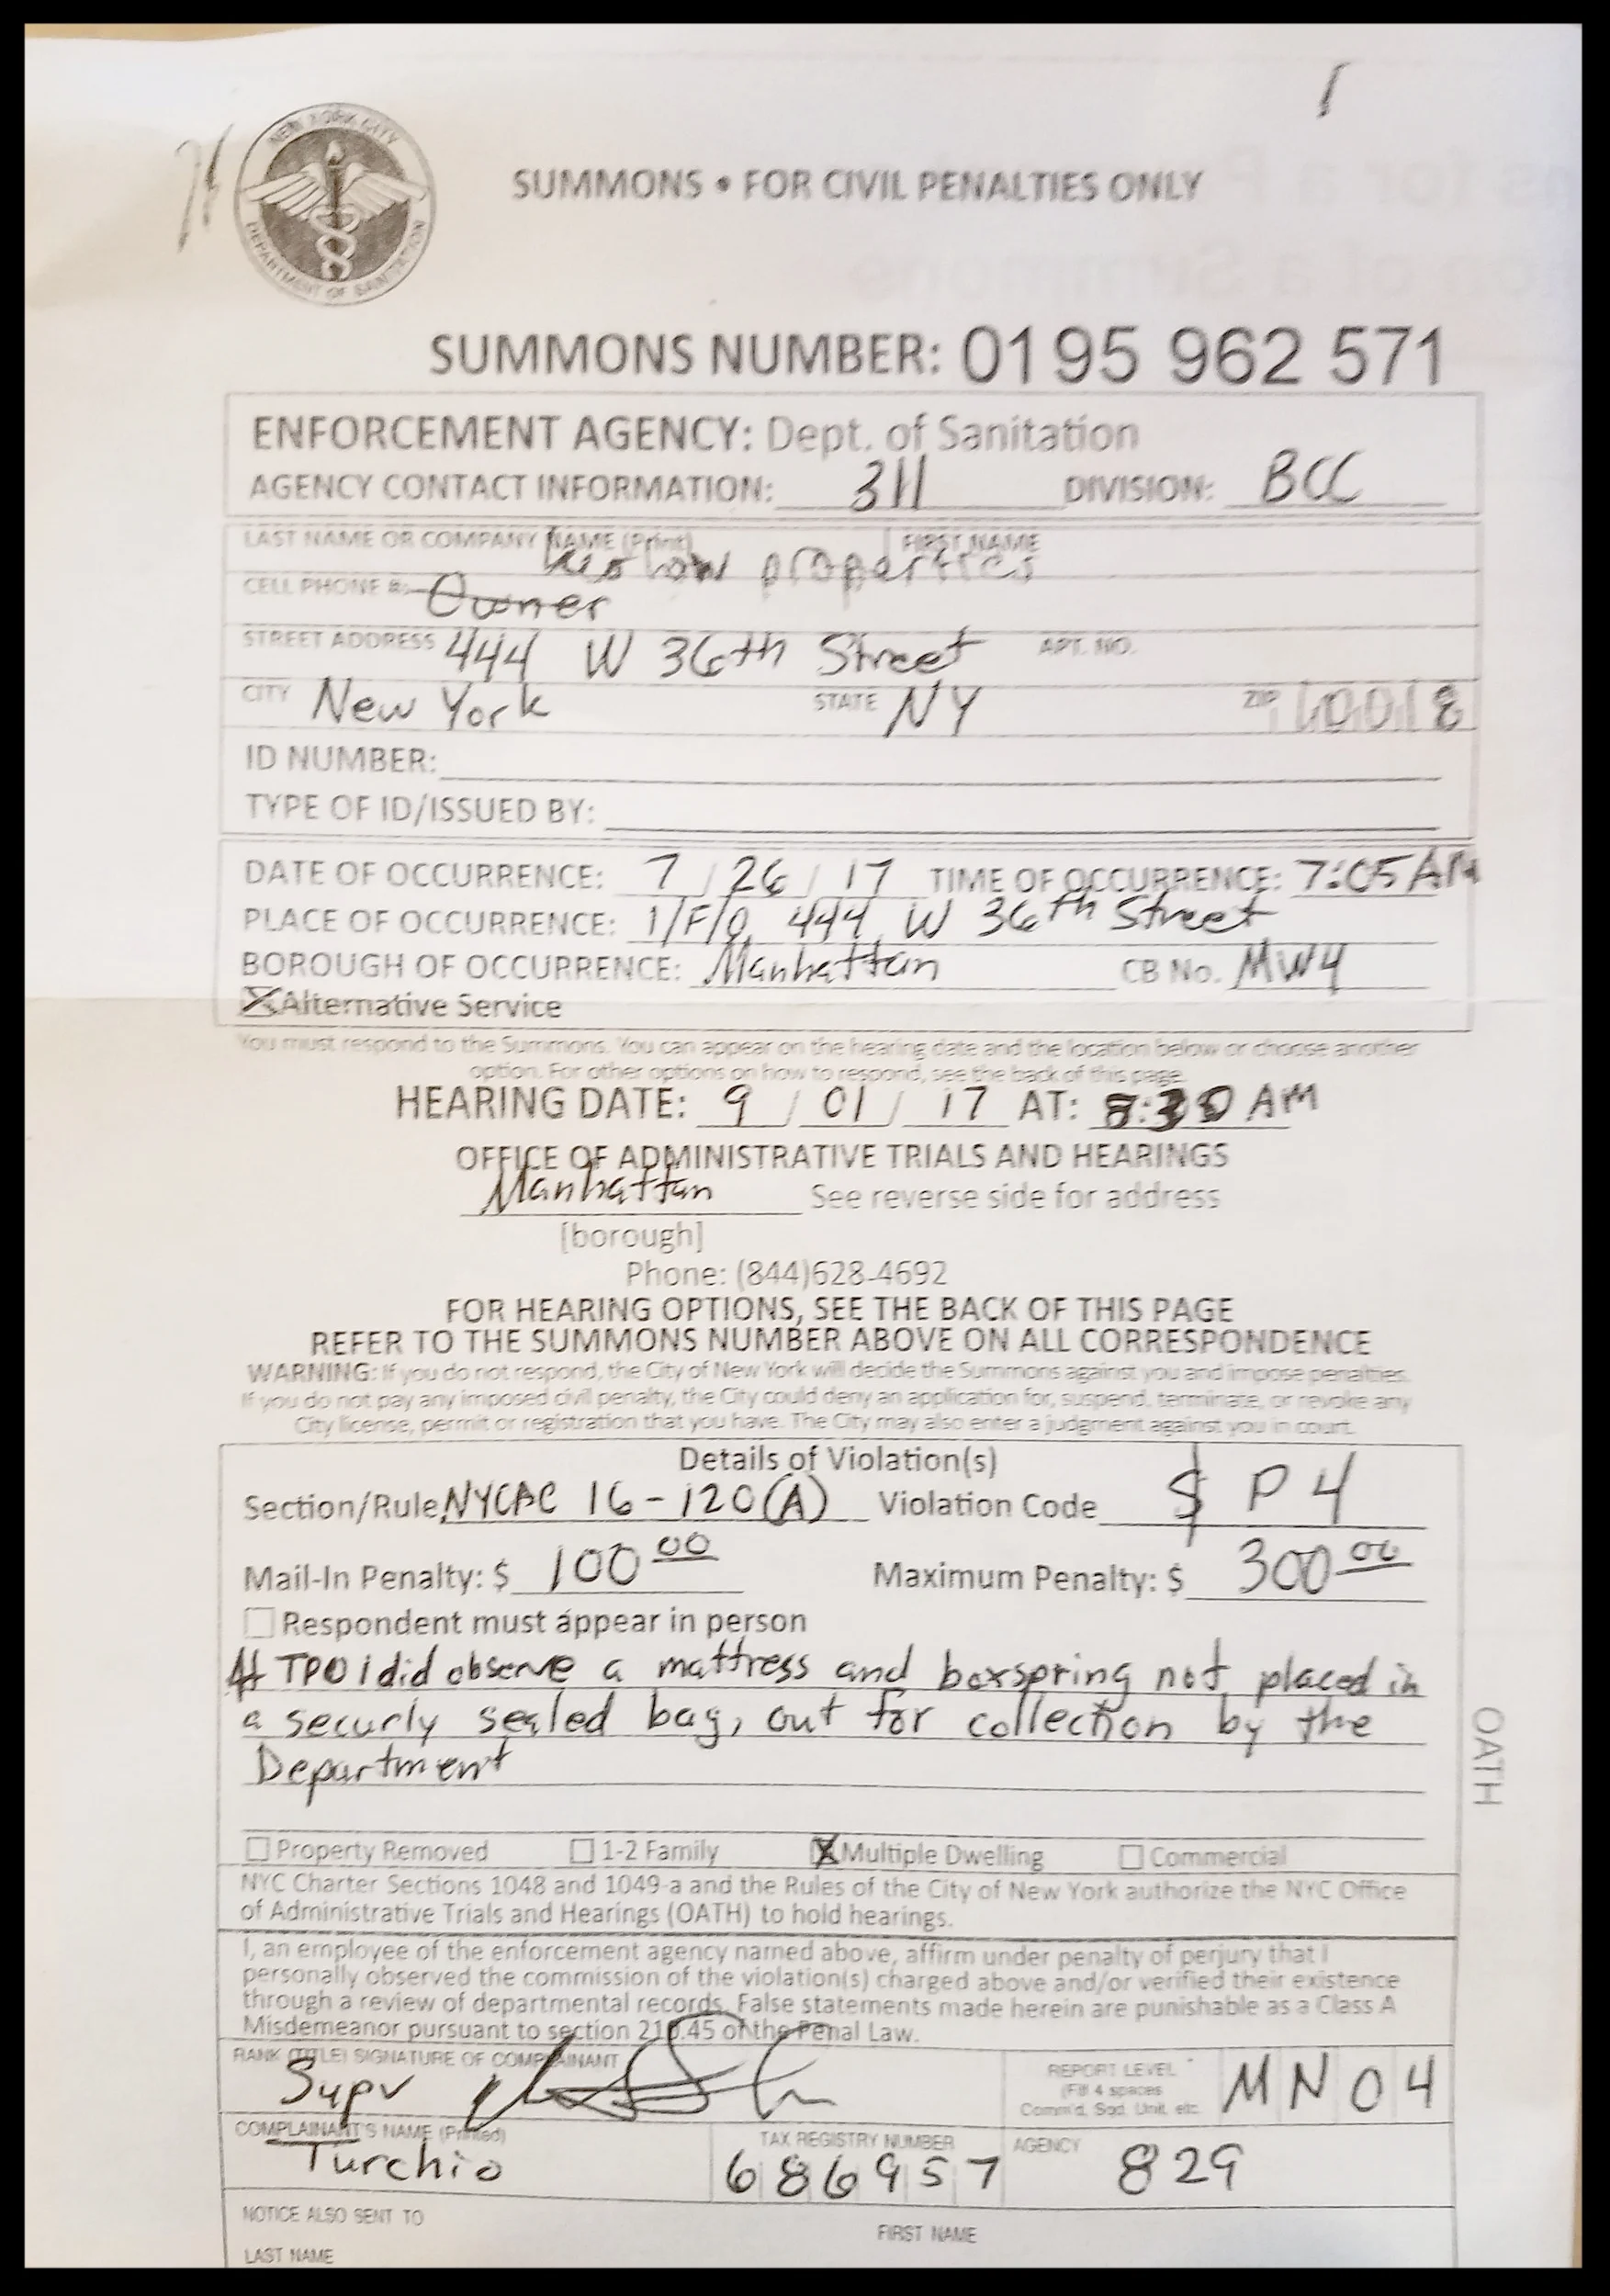 NEW YORK CITY
DEPARTMENT OF SANITATION
SUMMONS • FOR CIVIL PENALTIES ONLY
SUMMONS NUMBER: 0195 962 571
ENFORCEMENT AGENCY: Dept. of Sanitation
AGENCY CONTACT INFORMATION: 311 DIVISION: BCC
LAST NAME OR COMPANY NAME (Print) FIRST NAME
properties
CELL PHONE #: Owner
STREET ADDRESS 444 W 36th Street APT. NO.
CITY New York STATE NY ZIP 10018
ID NUMBER:
TYPE OF ID/ISSUED BY:
DATE OF OCCURRENCE: 7 / 26 / 17 TIME OF OCCURRENCE: 7:05 AM
PLACE OF OCCURRENCE: I/F/O 444 W 36th Street
BOROUGH OF OCCURRENCE: Manhattan CB No. MW4
Alternative Service
You must respond to the Summons. You can appear on the hearing date and the location below or choose another
option. For other options on how to respond, see the back of this page.
HEARING DATE: 9 / 01 / 17 AT: 8:30 AM
OFFICE OF ADMINISTRATIVE TRIALS AND HEARINGS
Manhattan See reverse side for address
[borough]
Phone: (844)628-4692
FOR HEARING OPTIONS, SEE THE BACK OF THIS PAGE
REFER TO THE SUMMONS NUMBER ABOVE ON ALL CORRESPONDENCE
WARNING: If you do not respond, the City of New York will decide the Summons against you and impose penalties.
If you do not pay any imposed civil penalty, the City could deny an application for, suspend, terminate, or revoke any
City license, permit or registration that you have. The City may also enter a judgment against you in court.
Details of Violation(s)
Section/Rule NYCAC 16-120(A) Violation Code S P 4
Mail-In Penalty: $ 100 00 Maximum Penalty: $ 300 00
Respondent must appear in person
At TPO I did observe a mattress and boxspring not placed in
a securly sealed bag, out for collection by the
Department
Property Removed 1-2 Family Multiple Dwelling Commercial
NYC Charter Sections 1048 and 1049-a and the Rules of the City of New York authorize the NYC Office
of Administrative Trials and Hearings (OATH) to hold hearings.
I, an employee of the enforcement agency named above, affirm under penalty of perjury that I
personally observed the commission of the violation(s) charged above and/or verified their existence
through a review of departmental records. False statements made herein are punishable as a Class A
Misdemeanor pursuant to section 210.45 of the Penal Law.
RANK (TITLE) SIGNATURE OF COMPLAINANT
Supv
REPORT LEVEL
(Fill 4 spaces
Comm'd, Sqd. Unit, etc.
MN04
COMPLAINANT'S NAME (Printed) TAX REGISTRY NUMBER AGENCY
Turchio 686957 829
NOTICE ALSO SENT TO
LAST NAME FIRST NAME
OATH